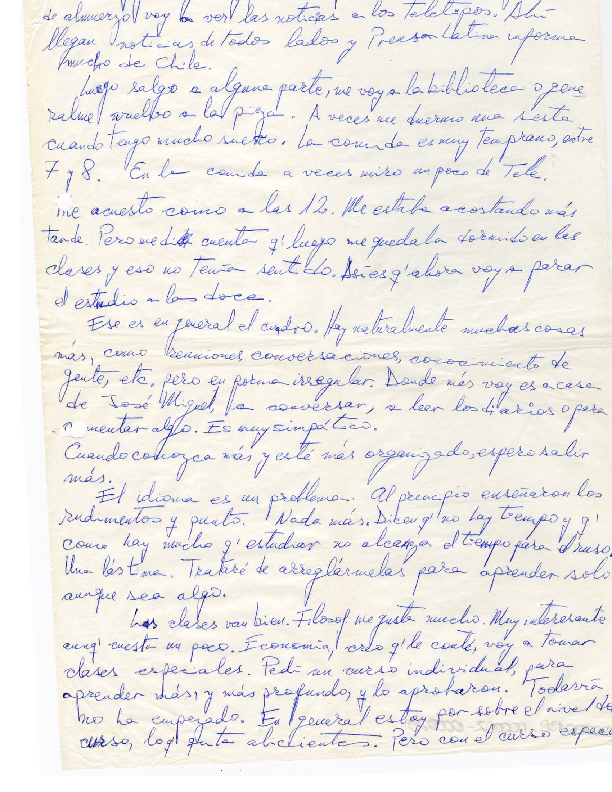 de almuerzo voy a ver las noticias a los Teletipos. Ahí
llegan noticias de todos lados y Prensa Latina informa
mucho de Chile.
Luego salgo a alguna parte, me voy a la biblioteca o gene
ralme vuelvo a la pieza. A veces me duermo una siesta
cuando tengo mucho sueño. La comida es muy temprano, entre
7 y 8. En la comida a veces miro un poco de Tele.
me acuesto como a las 12. Me estaba acostando más
tarde. Pero me di cuenta q' luego me quedaba dormido en las
clases y eso no tenía sentido. Así es q' ahora voy a parar
el estudio a las doce.
Ese es en general el cuadro. Hay naturalmente muchas cosas
más, como reuniones conversaciones, conocimiento de
gente, etc, pero en forma irregular. Donde más voy es a casa
de José Miguel, a conversar, a leer los diarios o para
comentar algo. Es muy simpático.
Cuando conozca más y esté más organizado, espero salir
más.
El idioma es un problema. Al principio enseñaron los
rudimentos y punto. Nada más. Dicen q' no hay tiempo y q'
como hay mucho q' estudiar no alcanza el tiempo para el ruso.
Una lástima. Trataré de arreglármelas para aprender solo
aunque sea algo.
Las clases van bien. Filosof me gusta mucho. Muy interesante
aunq' cuesta un poco. Economía, creo q' le conté, voy a tomar
clases especiales. Pedí un curso individual, para
aprender más, y más profundo, y lo aprobaron. Todavía
no ha empezado. En general estoy por sobre el nivel del
curso, lo q' quita alicientes. Pero con el curso especial